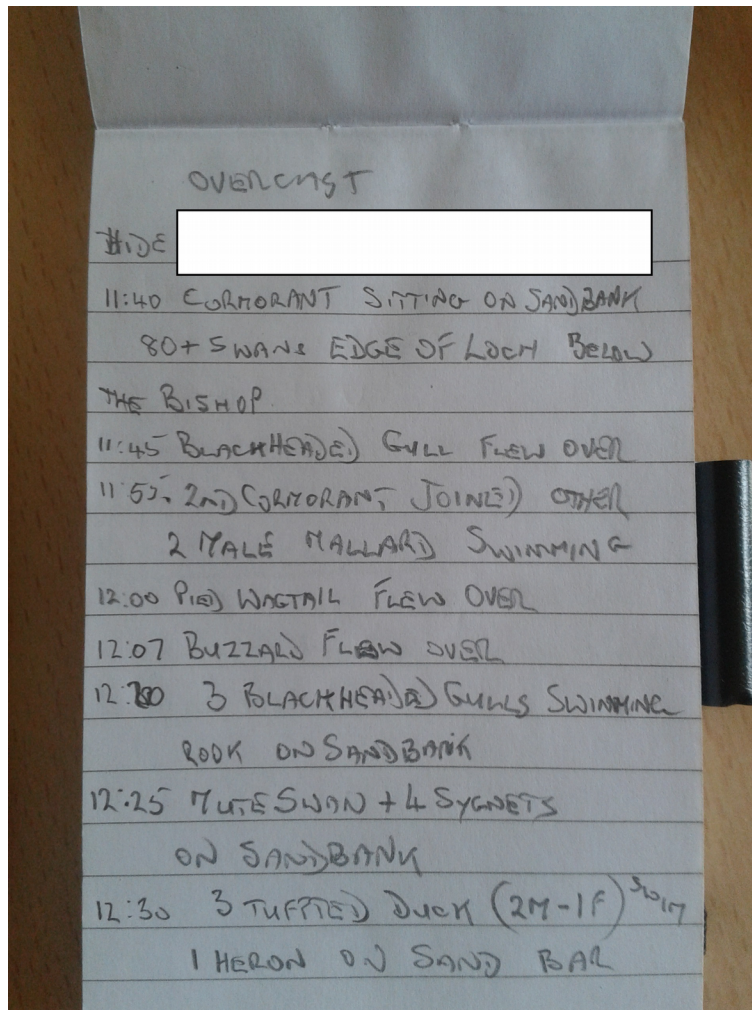 OVERCAST
HIDE
11:40 CORMORANT SITTING ON SANDBANK
80+ SWANS EDGE OF LOCH BELOW
THE BISHOP.
11:45 BLACKHEADED GULL FLEW OVER
11:55. 2ND CORMORANT JOINED OTHER
2 MALE MALLARD SWIMMING
12:00 PIED WAGTAIL FLEW OVER
12:07 BUZZARD FLEW OVER
3 BLACKHEADED GULLS SWIMMING
ROOK ON SANDBANK
12:25 MUTE SWAN + 4 SYGNETS
ON SANDBANK
12:30 3 TUFTED DUCK (2M-1F) SWIM
1 HERON ON SAND BAR